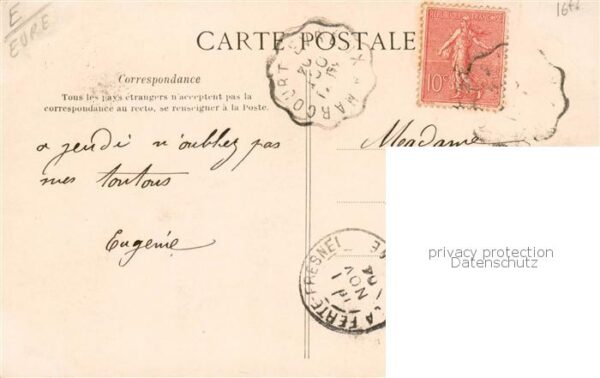 E
EURE
CARTE POSTALE
Correspondance
Tous les pays étrangers n'acceptent pas la
correspondance au recto, se renseigner à la Poste.
RÉPUBLIQUE FRANÇAISE
10c
MARCOURT
OCT
04
a jeudi n'oubliez pas
mes toutous
Eugénie
Madame
LA FERTE-FRESNEL
1
NOV
04
privacy protection
Datenschutz